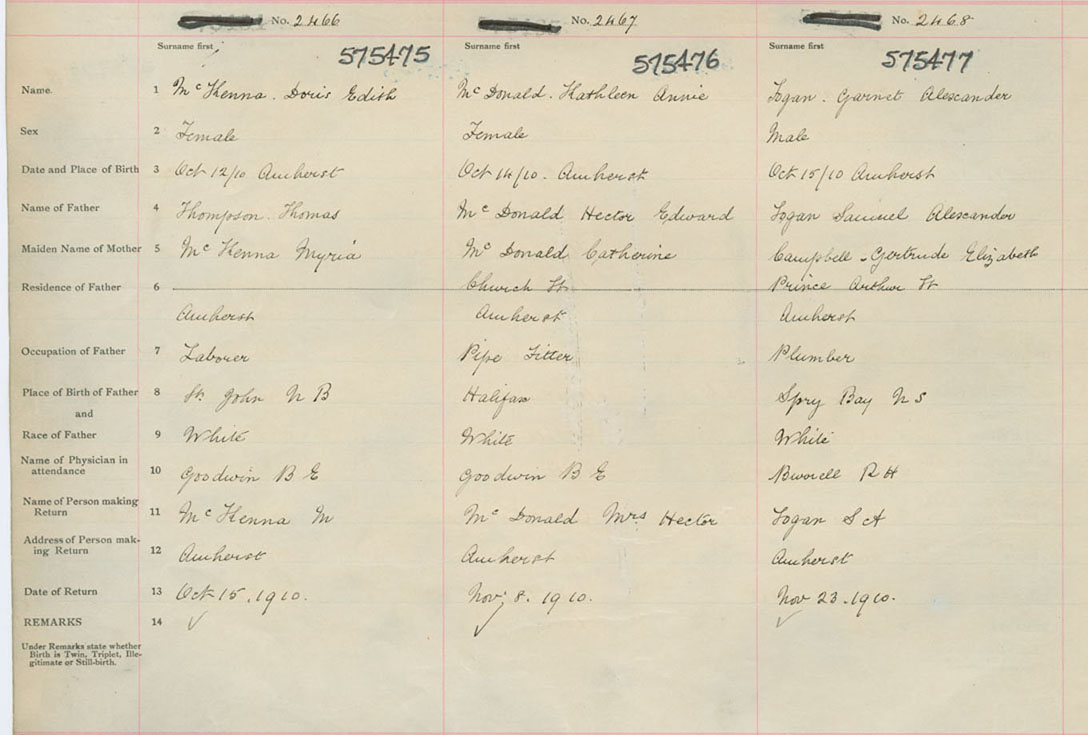 No. 2466 No. 2467 No. 2468
Surname first Surname first Surname first
575475 575476 575477
Name. 1 McKenna. Doris Edith McDonald. Kathleen Annie Logan. Garnet Alexander
Sex 2 Female Female Male
Date and Place of Birth 3 Oct 12/10 Amherst Oct 14/10. Amherst Oct 15/10 Amherst
Name of Father 4 Thompson. Thomas McDonald Hector Edward Logan Samuel Alexander
Maiden Name of Mother 5 McKenna Myria McDonald Catherine Campbell - Gertrude Elizabeth
Residence of Father 6 Church St Prince Arthur St
Amherst Amherst Amherst
Occupation of Father 7 Laborer Pipe Fitter Plumber
Place of Birth of Father 8 St. John N B Halifax Spry Bay N S
and
Race of Father 9 White White White
Name of Physician in
attendance 10 Goodwin B E Goodwin B E R H
Name of Person making
Return 11 McKenna M McDonald Mrs Hector Logan S A
Address of Person mak-
ing Return 12 Amherst Amherst Amherst
Date of Return 13 Oct 15. 1910. Nov. 8. 1910. Nov 23. 1910.
REMARKS 14 ✓ ✓ ✓
Under Remarks state whether
Birth is Twin, Triplet, Ille-
gitimate or Still-birth.